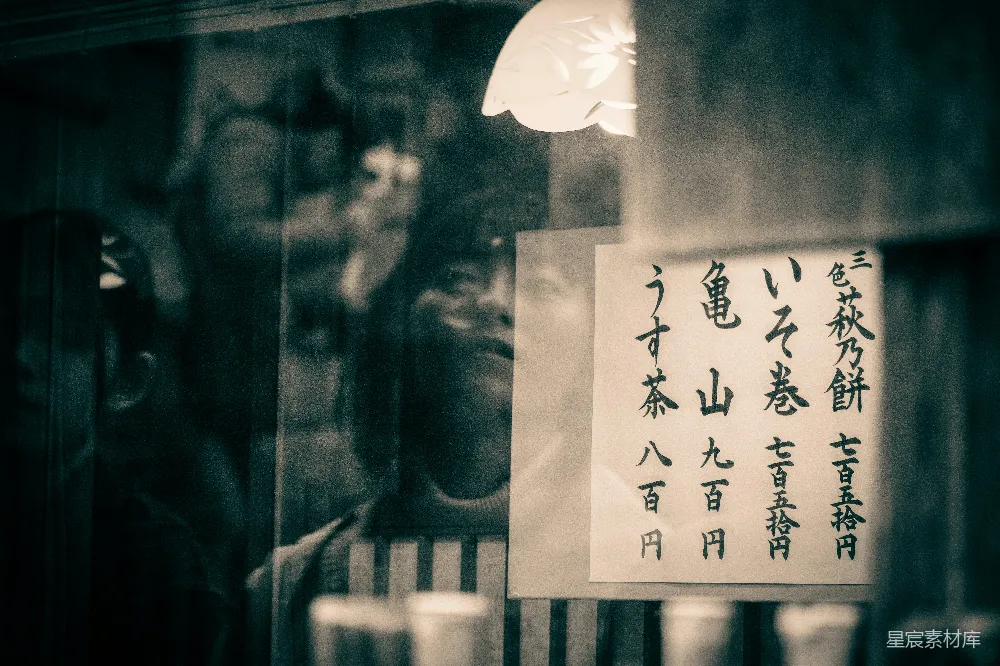 三色萩乃餅 七百五拾円
いそ巻 七百五拾円
亀山 九百円
うす茶 八百円
星宸素材库